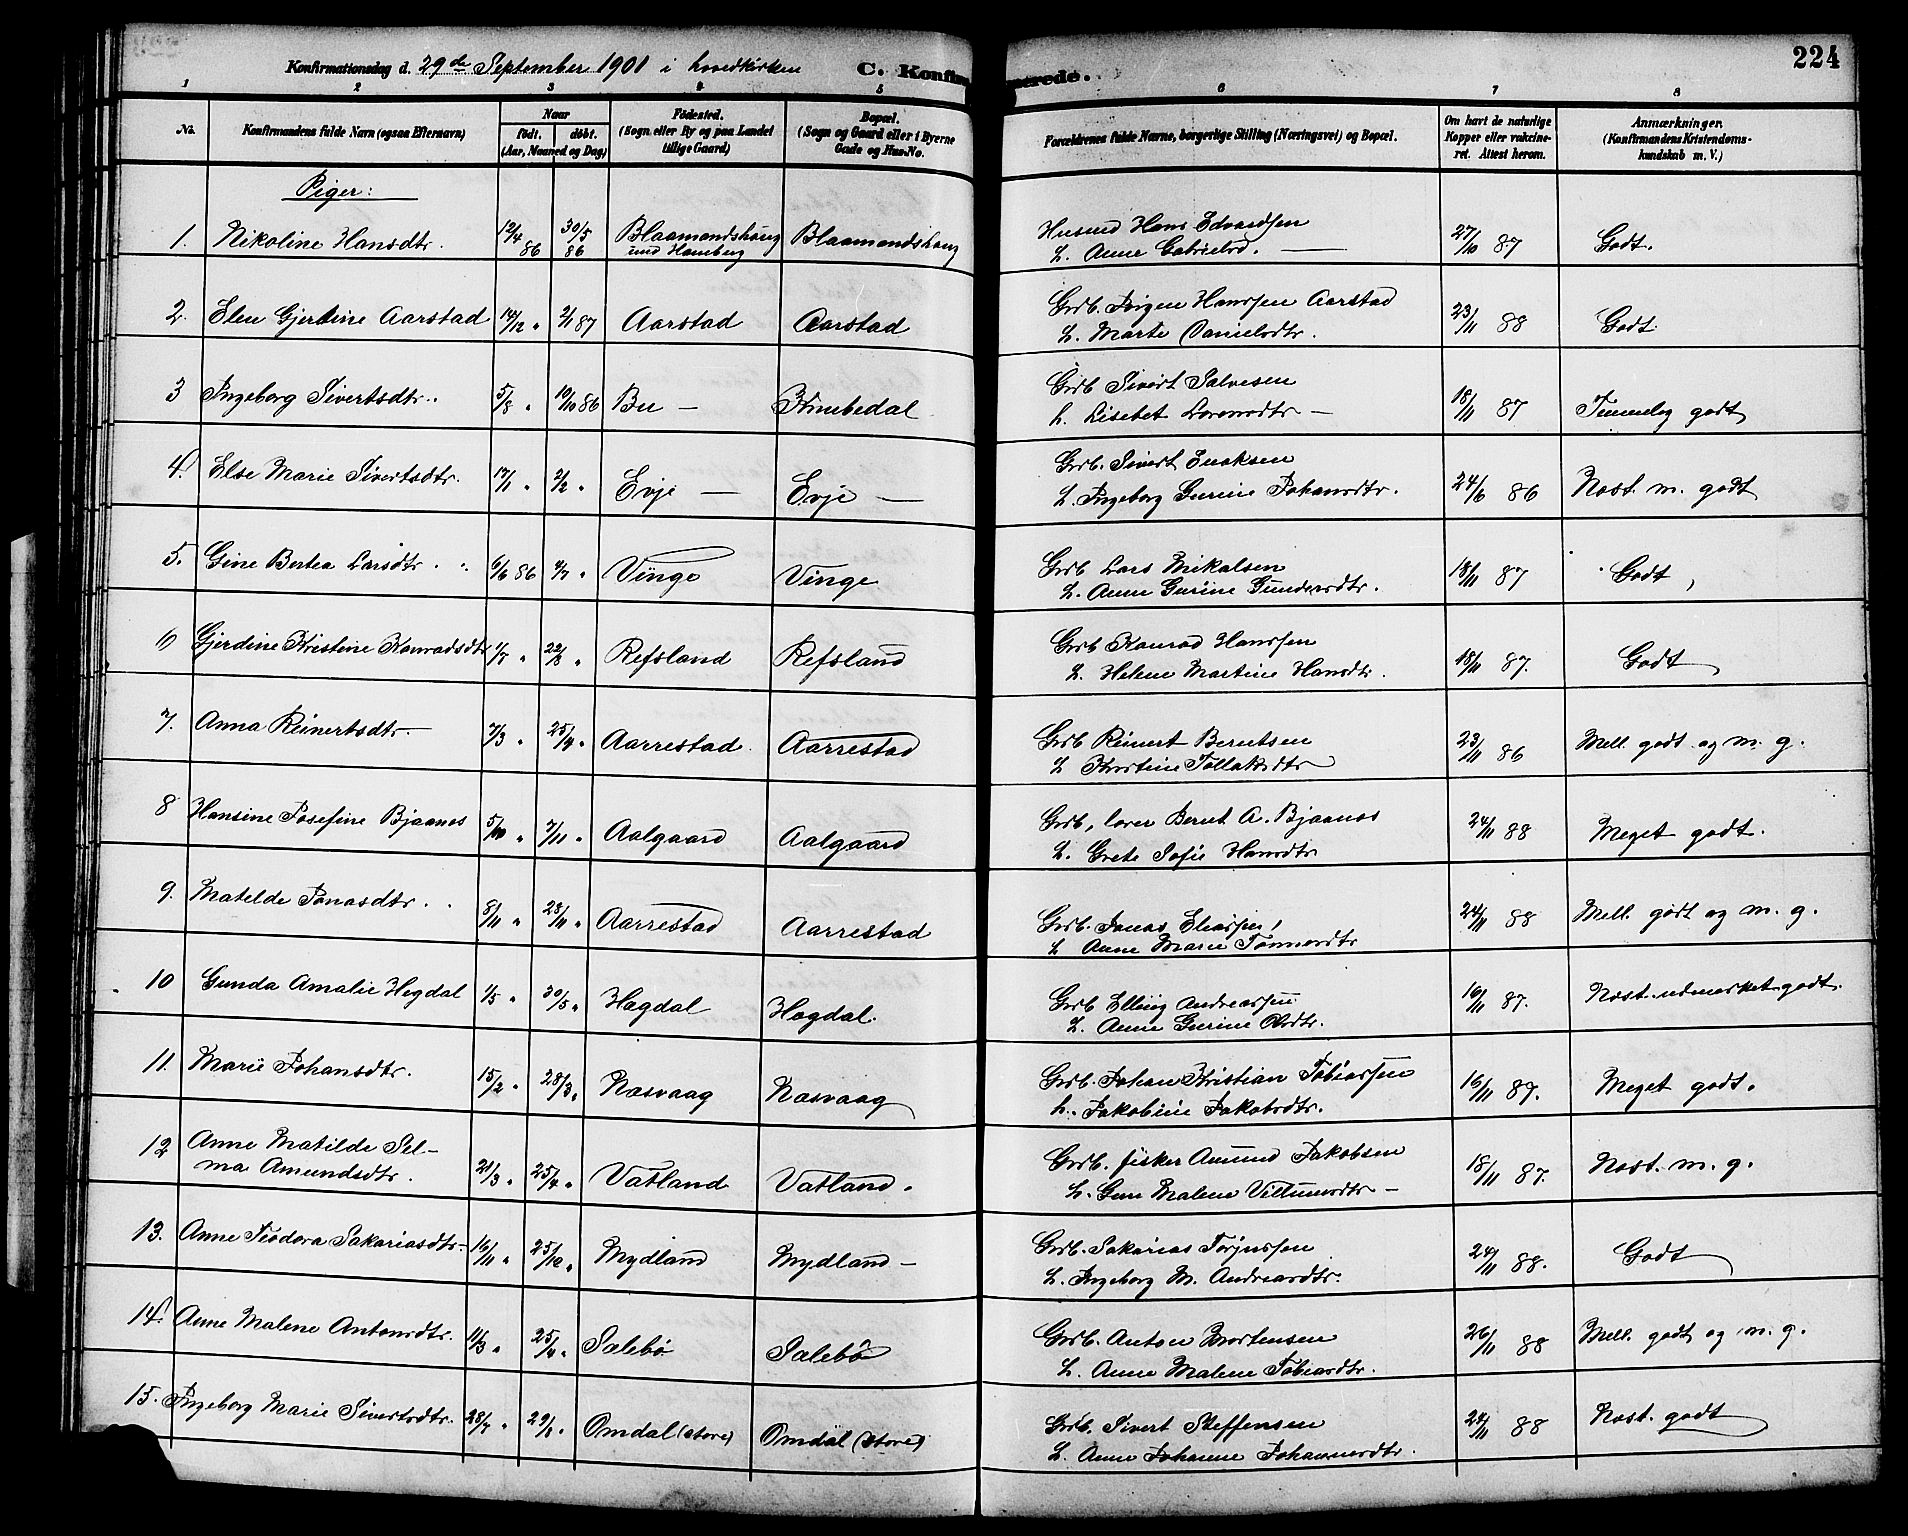 224
Konfirmationsdag d. 29de September 1901 i hovedkirken C. Konfirmerede.
1 2 3 4 5 6 7 8
No. Konfirmandens fulde Navn (ogsaa Efternavn) Naar født. døbt. (Aar, Maaned og Dag) Fødested. (Sogn eller By og paa Landet tillige Gaard) Bopæl. (Sogn og Gaard eller i Byerne Gade og Hus-No. Forældrenes fulde Navne, borgerlige Stilling (Næringsvei) og Bopæl. Om havt de naturlige Kopper eller vakcineret. Attest herom. Anmærkninger. (Konfirmandens Kristendomskundskab m. V.)
Piger:
1. Nikoline Hansdtr. 12/4 86 30/5 86 Blaamandshaug und Blaamandshaug Husmd Hans Edvardsen 27/10 87 Godt.
H. Anne Gabrielsd. —
2. Elen Gjertine Aarstad 14/12 " 2/1 87 Aarstad Aarstad Grb. Jørgen Hanssen Aarstad 23/11 88 Godt.
H. Marte Danielsdtr.
3 Ingeborg Sivertsdtr. 5/8 " 10/10 86 Bu — Grb Sivert Salvesen 18/11 87 Temmelig godt
h. Lisebet —
4. Else Marie Sivertsdtr. 17/1 " 2/2 " Evje — Evje — Grb. Sivert Enoksen 24/6 86 Næst. m. godt
H. Ingeborg Gurine Johansdtr.
5. Gine Bertea Larsdtr. 6/6 86 4/7 " Vinge Vinge Grb Lars Mikalsen 18/11 87 Godt
H. Anne Gurine Gundersdtr.
6 Gjerdine Kristine Konradsdtr 1/7 " 22/8 " Refsland Refsland Grb Konrad Hanssen 18/11 87. Godt
H. Helene Martine Hansdtr.
7. Anna Reinertsdtr. 7/3 " 25/4 " Aarrestad Aarrestad Grb Reinert Berntsen 23/11 86 Mell. godt og m. g.
H Kristine Tollaksdtr
8 Hansine Josefine Bjaanes 5/10 " 7/11 " Aalgaard Aalgaard Grb, lærer Bernt A. Bjaanes 24/11 88 Meget godt.
H. Grete Sofie Hansdtr
9. Matelde Jonasdtr. 8/11 " 28/11 " Aarrestad Aarrestad Grb. Jonas Eliassen 24/11 88 Mell. godt og m. g.
H Anne Marie Tønnesdtr
10 Gunda Amalie Hegdal 1/5 " 30/5 " Hægdal Hægdal. Grb Elling Andreassen 16/11 87. Næst. udmærket godt.
H. Anne Gurine Olsdtr.
11. Marie Johansdtr. 15/2 " 28/3 " Næsvaag Næsvaag Grb. Johan Kristian Tobiassen 16/11 87. Meget godt.
h. Jakobine Jakobsdtr.
12 Anne Matilde Sel-
ma Amundsdtr. 21/3 " 25/4 " Vatland Vatland. Grb. fisker Amund Jakobsen 18/11 87. Næst. m. g.
H. Malene —
13. Anne Teodora Sakariasdtr. 16/11 " 25/10 " Mydland Mydland — Grb. Sakarias 24/11 88. Godt
H. Ingeborg M. Andreasdtr.
14. Anne Malene Antonsdtr. 11/3 " 25/4 " Salebø Salebø Grb. Anton Mortensen 26/11 88 Mell. godt og m. g.
H. Anne Malene Tobiasdtr.
15. Ingeborg Marie Sivertsdtr. 28/7 " Omdal (store) Omdal (store) Grb. Sivert Steffensen 24/11 88 Næst. godt
H. Anne Johanne Johannesdtr.